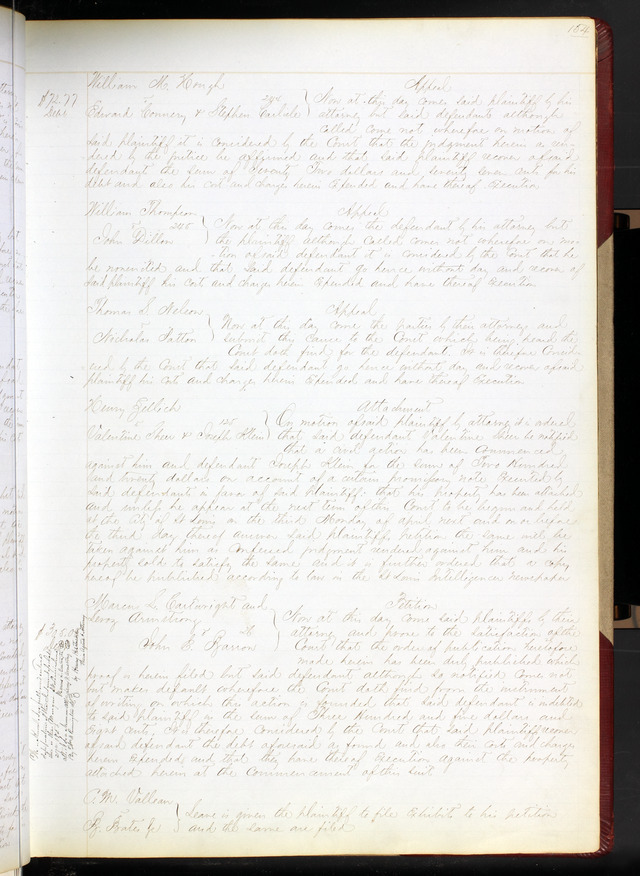 164
William M. Hough Appeal
$72.77 Debt
Edward Connery & Stephen Carlile } Now at this day comes said plaintiff by his
attorney but said defendants although
called come not wherefore on motion of
said plaintiff it is considered by the Court that the judgment herein as ren-
dered by the justice be affirmed and that said plaintiff recover of said
defendants the sum of Seventy Two dollars and seventy seven cents for his
debt and also his cost and charges herein expended and have thereof execution
William Thompson Appeal
vs 248
John Dillon } Now at this day comes the defendant by his attorney but
the plaintiff although called comes not wherefore on mo-
tion of said defendant it is considered by the Court that he
be nonsuited and that said defendant go hence without day and recover of
said plaintiff his cost and charges herein expended and have thereof execution
Thomas S. Nelson Appeal
vs
Nicholas Patton } Now at this day come the parties by their attorneys and
submit this cause to the Court which being heard the
Court doth find for the defendant. It is therefore Consid-
ered by the Court that said defendant go hence without day and recover of said
plaintiff his costs and charges herein expended and have thereof execution
Henry Attachment
vs 125
Valentine & Joseph Klein } On motion of said plaintiff by attorney it is ordered
that said defendant Valentine be notified
that a civil action has been commenced
against him and defendant Joseph Klein for the sum of Two Hundred
and twenty dollars on account of a certain promissory note executed by
said defendants in favor of said Plaintiff that his property has been attached
and unless he appear at the next term of this Court to be begun and held
at the City of St Louis on the third Monday of April next and on or before
the third day thereof answer said plaintiffs petition the same will be
taken against him as confessed judgment rendered against him and his
property sold to satisfy the same and it is further ordered that a copy
hereof be published according to law in the St Louis Intelligencer newspaper
L. Cartwright and Petition
Leroy Armstrong
vs
John E. Barron } Now at this day come said plaintiffs by their
attorney and prove to the satisfaction of the
Court that the order of publication heretofore
made herein has been duly published which
proof is herein filed but said defendant although so notified comes not
but makes default wherefore the Court doth find from the instrument
of writing on which the action is founded that said defendant is indebted
to said plaintiffs in the sum of Three Hundred and five dollars and
eight cents, It is therefore considered by the Court that said plaintiffs recover
of said defendant the debt aforesaid as found and also their costs and charges
herein expended and that they have thereof execution against the property
attached herein at the commencement of this suit
vs
} Leave is given the plaintiff to file Exhibits to his petition
and the same are filed